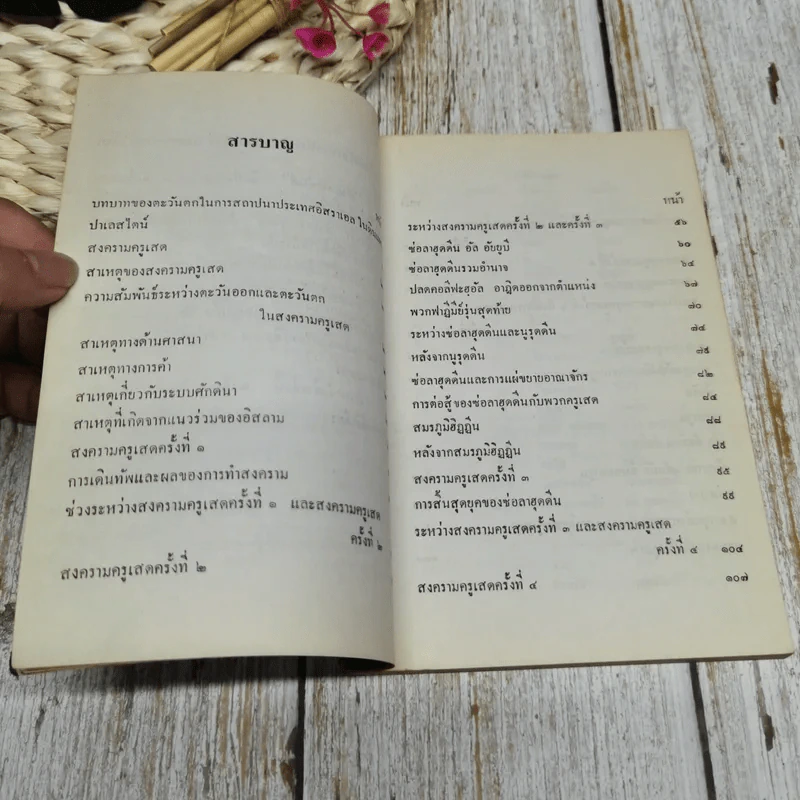 สารบาญ
บทบาทของตะวันตกในการสถาปนาประเทศอิสราเอล
ปาเลสไตน์
สงครามครูเสด
สาเหตุของสงครามครูเสด
ความสัมพันธ์ระหว่างตะวันออกและตะวันตก
ในสงครามครูเสด
สาเหตุทางด้านศาสนา
สาเหตุทางการค้า
สาเหตุเกี่ยวกับระบบศักดินา
สาเหตุที่เกิดจากแนวร่วมของอิสลาม
สงครามครูเสดครั้งที่ ๑
การเดินทัพและผลของการทำสงคราม
ช่วงระหว่างสงครามครูเสดครั้งที่ ๑ และสงครามครูเสด
ครั้งที่ ๒
สงครามครูเสดครั้งที่ ๒
หน้า
ระหว่างสงครามครูเสดครั้งที่ ๒ และครั้งที่ ๓ ๕๖
ซ่อลาฮุดดีน อัล อัยยูบี ๖๑
ซ่อลาฮุดดีนรวมอำนาจ ๖๔
ปลดคอลีฟะฮฺอัล อาฎิดออกจากตำแหน่ง ๖๗
พวกฟาฏิมีย์รุ่นสุดท้าย ๗๐
ระหว่างซ่อลาฮุดดีนและนูรุดดีน ๗๔
หลังจากนูรุดดีน ๗๕
ซ่อลาฮุดดีนและการแผ่ขยายอาณาจักร ๘๒
การต่อสู้ของซ่อลาฮุดดีนกับพวกครูเสด ๘๔
สมรภูมิฮิฏฏีน ๘๘
หลังจากสมรภูมิฮิฏฏีน ๘๙
สงครามครูเสดครั้งที่ ๓ ๙๕
การสิ้นสุดยุคของซ่อลาฮุดดีน ๙๙
ระหว่างสงครามครูเสดครั้งที่ ๓ และสงครามครูเสด
ครั้งที่ ๔ ๑๐๔
สงครามครูเสดครั้งที่ ๔ ๑๐๗